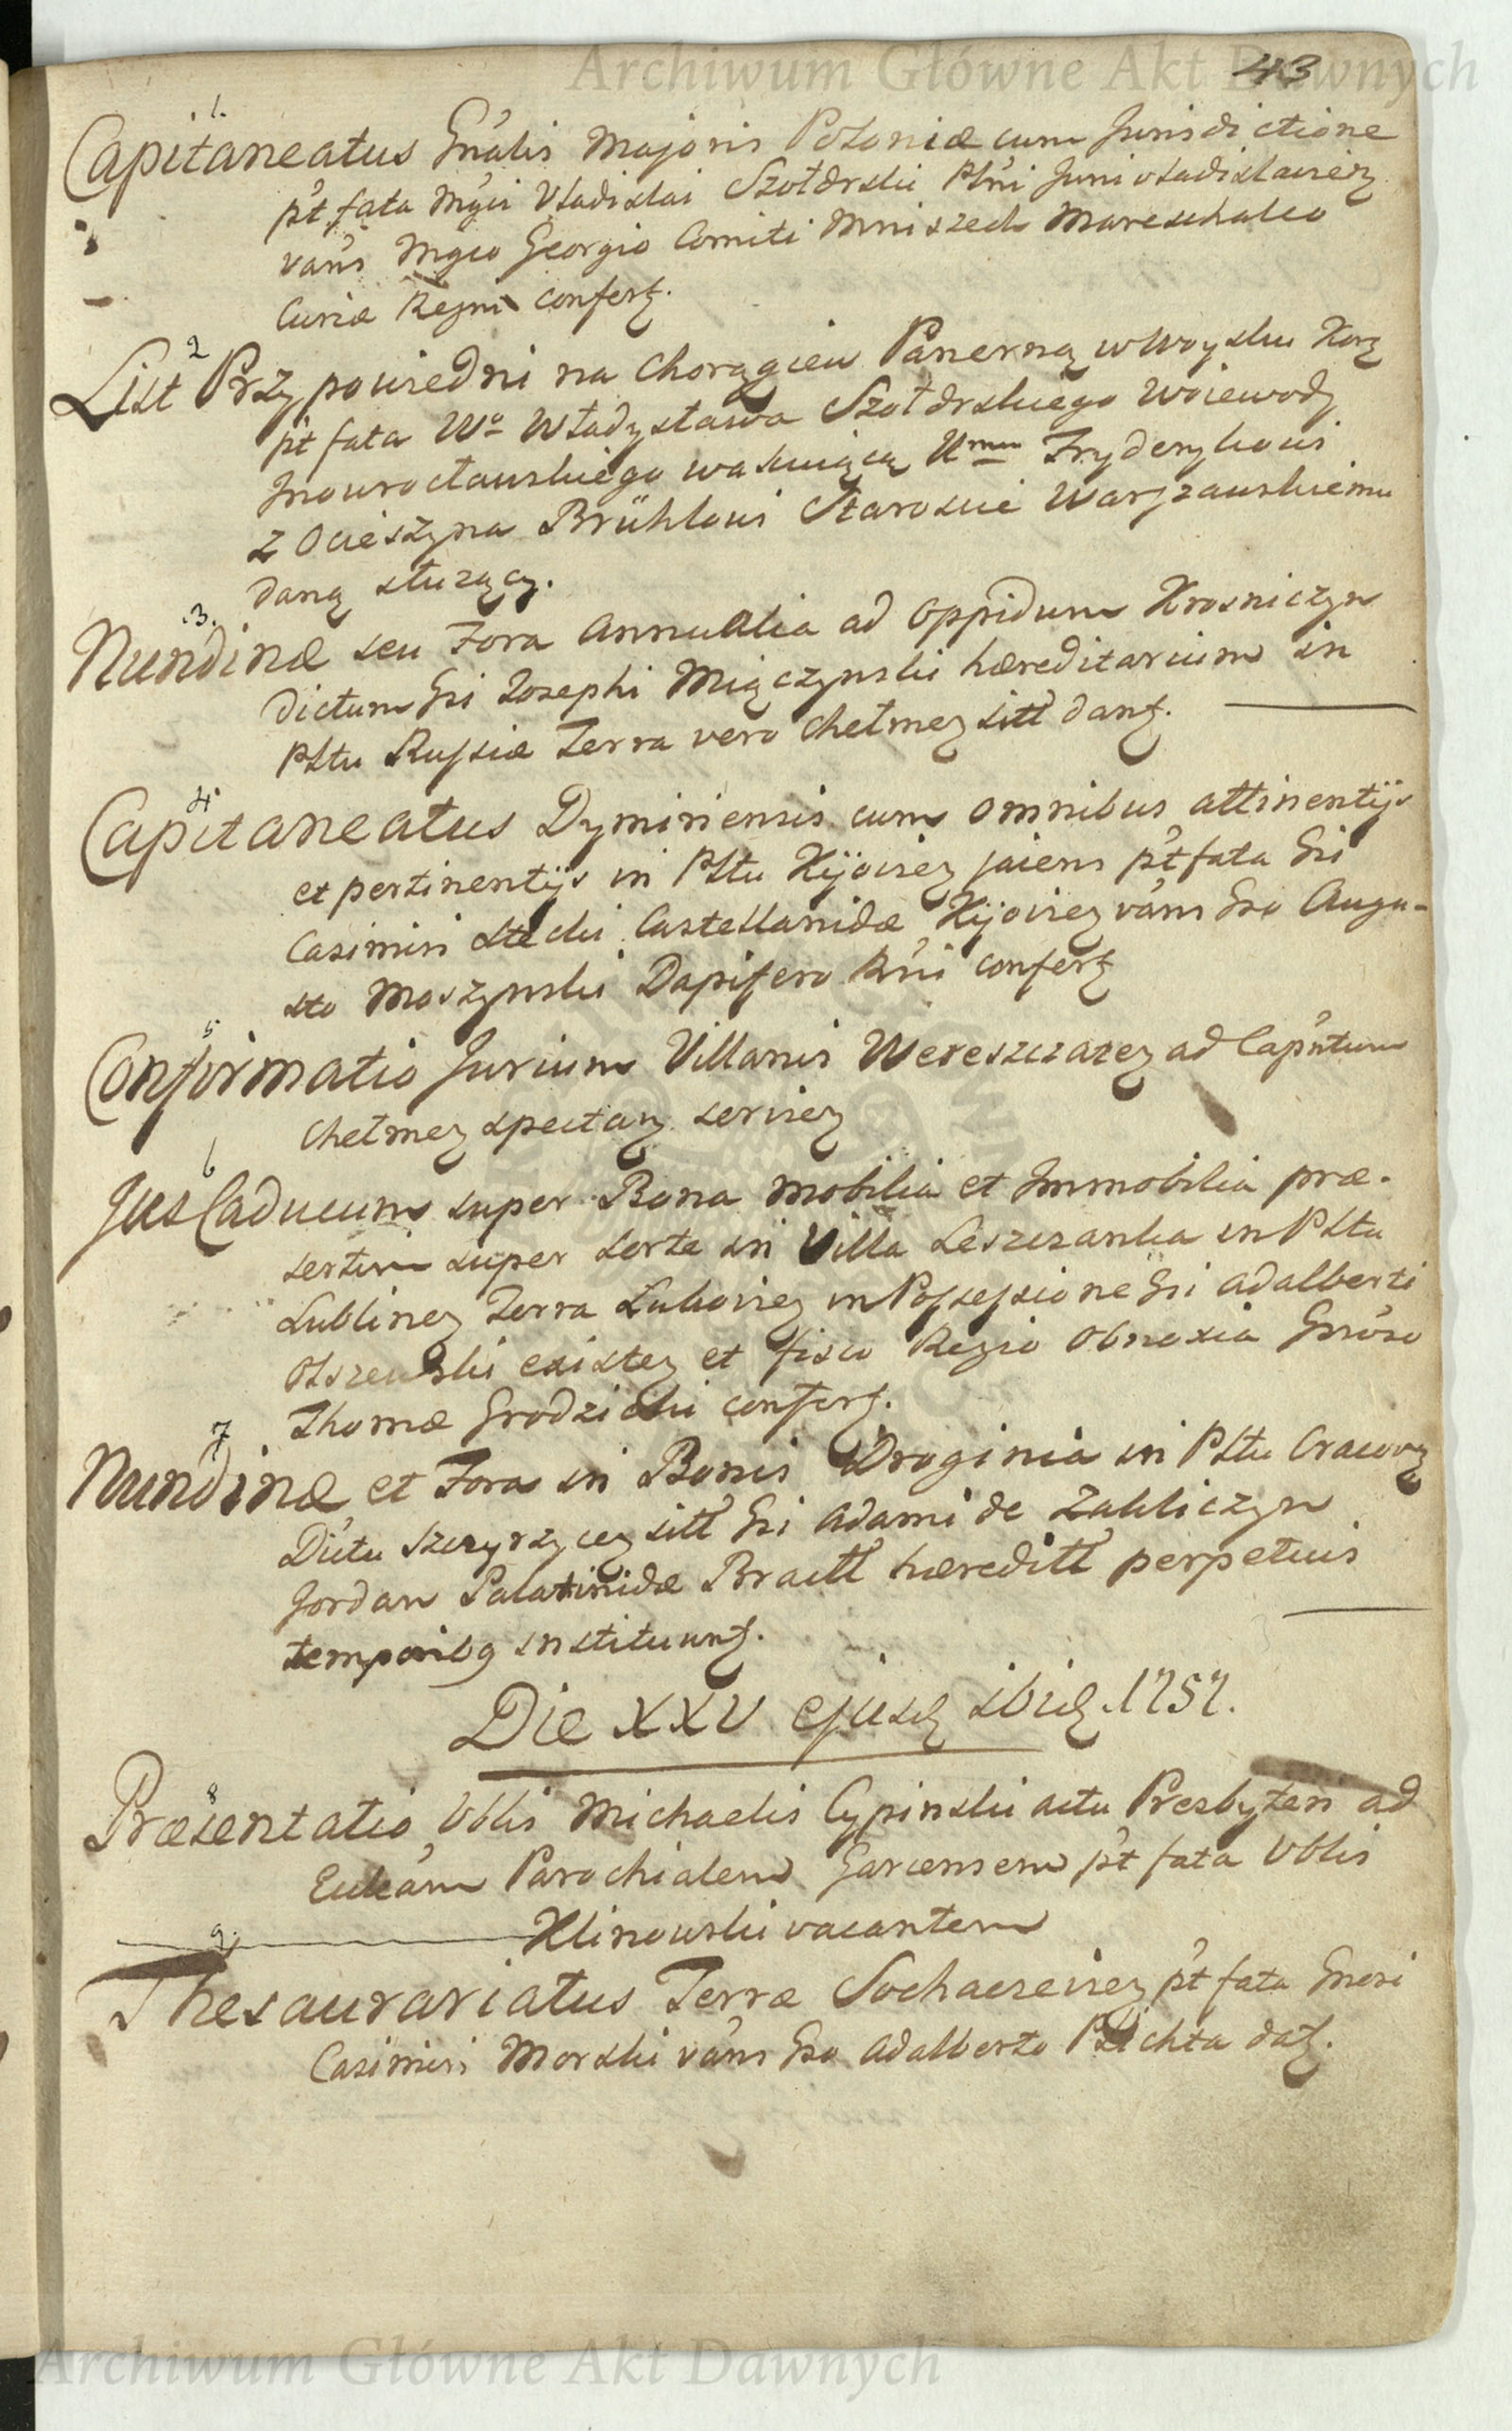 Archiwum Główne Akt Dawnych
43
1.
Capitaneatus Gn̄alis Majoris Poloniæ cum Jurisdictione
pt fata Mgci Vladislai Szołdrski Płni Junivladislavieꝫ
vańs Mgco Georgio Comiti Mniszech Mareschalco
Curiæ Regni confertꝫ.
2
List Przypowiedni na Chorągiew Pancerną w Woysku Korꝫ
pt fata Wo Władysława Szołdrskiego Woiewody
Inowrocławskiego wakuiącą Umu Fryderykowi
z Ocieszyna Brühlowi Staroscie Warszawskiemu
daną słuzący.
3.
Nundinæ seu Fora Annualia ad Oppidum Krasniczyn
dictum Gsi Josephi Miączynski hæreditarium in
Płtu Russiæ Terra vero Chełmeꝫ sitt dantꝫ.
4
Capitaneatus Dymiriensis cum omnibus attinentijs
et pertinentijs in Płtu Kijovieꝫ jacens pt fata Gsi
Casimiri Stecki Castellanidæ Kijovieꝫ vańs Gso Augu-
sto Moszynski Dapifero Rni confertꝫ
5
Confirmatio Jurium Villanis Wereszczazeꝫ ad Capńtum
Chełmeꝫ spectanꝫ servieꝫ
6
Jus Caducum super Bona mobilia et Immobilia præ-
sertim super sorte in Villa Leszczanka in Płtu
Lublineꝫ Terra Lukovieꝫ in Possessione Gsi Adalberti
Olszewski existeꝫ et fisco Regio obnoxia Gnroso
Thomæ Grodzicki confertꝫ.
7
Nundinæ et Fora in Bonis Droginia in Płtu Cracovꝫ
Dictu Szczyrzyceꝫ sitt Gsi Adami de Zakliczyn
Jordan Palatinidæ Bractt hæreditt perpetuis
temporibꝫ instituuntꝫ.
Die XXV ejusdꝫ ibidꝫ. 1757.
8
Præsentatio Vblis Michaelis Cypinski actu Presbyteri ad
Eccleam Parochialem Garcensem pt fata Vblis
Klinowski vacantem
9.
Thesaurariatus Terræ Sochaczevieꝫ pt fata Gnrosi
Casimiri Morski vańs Gso Adalberto Plichta datꝫ.
Archiwum Główne Akt Dawnych